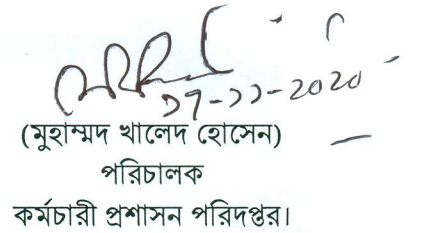 ১৭-১১-২০২০
(মুহাম্মদ খালেদ হোসেন)
পরিচালক
কর্মচারী প্রশাসন পরিদপ্তর।